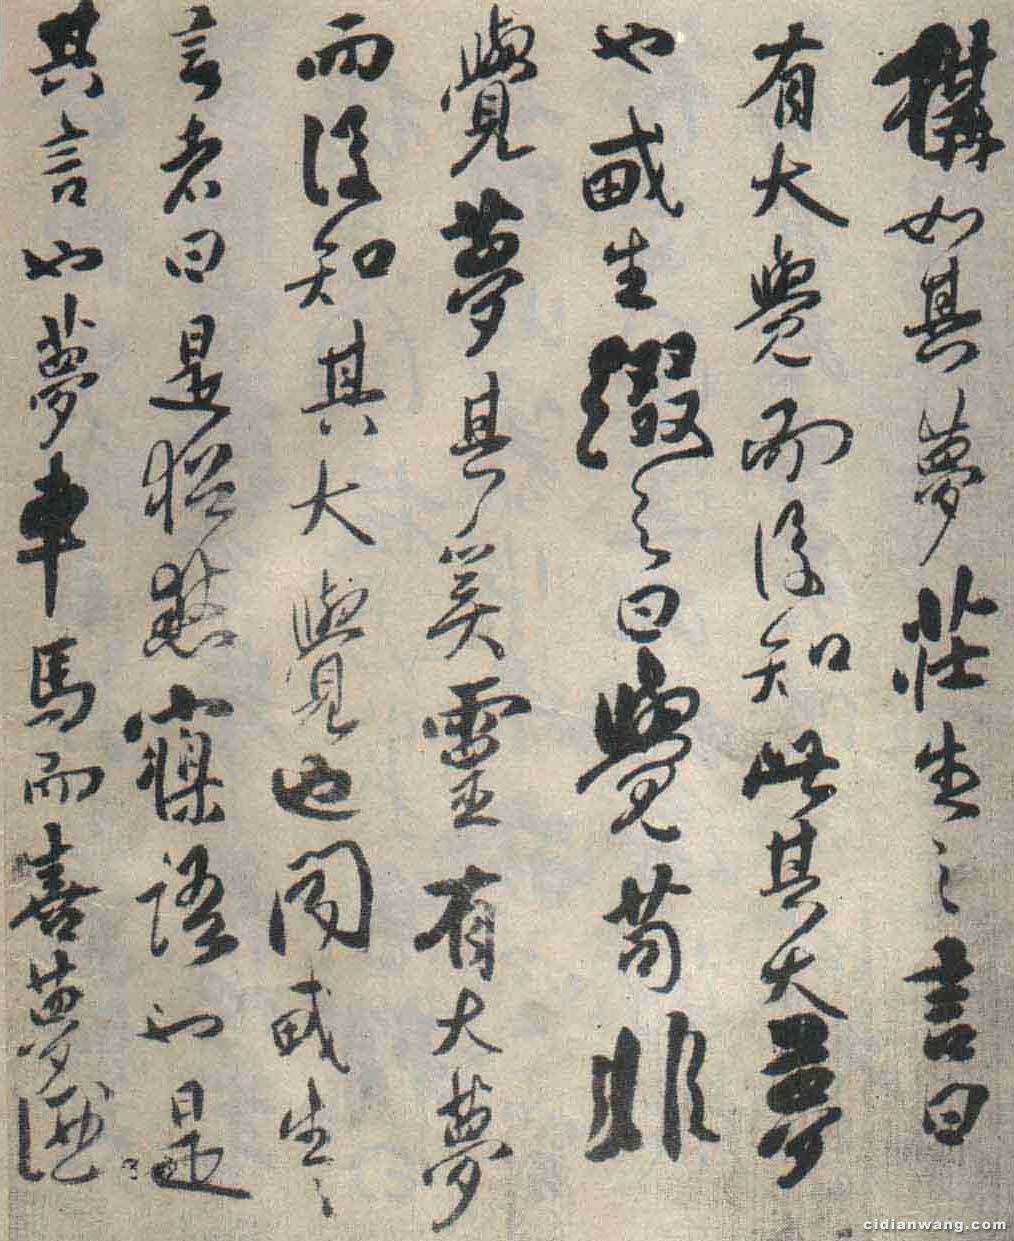 構如其夢莊生之言曰
有大覺而後知此其大夢
也戜生綴之曰覺苟非
覺夢其奚靈有大夢
而後知其大覺也閱戜生之
言者曰是猶愁寱語也是
其言也夢車馬而喜夢
cidianwang.com